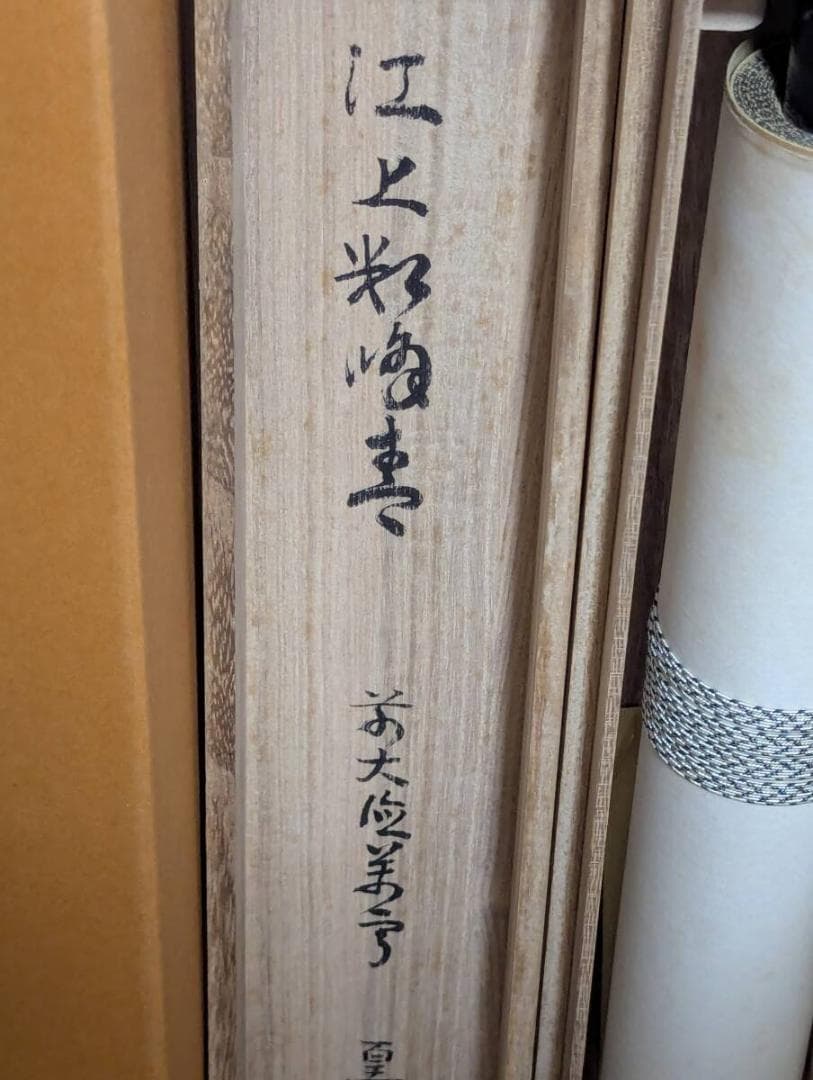 江上数峰青
前大徳萬寧